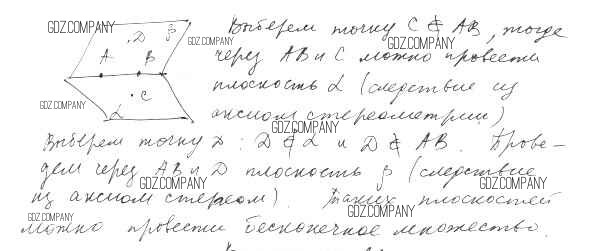 Выберем точку C ∉ AB, тогда
через AB и C можно провести
плоскость α (следствие из
аксиом стереометрии)
Выберем точку D : D ∉ α и D ∉ AB. Прове-
дем через AB и D плоскость β (следствие
из аксиом стереом). Таких плоскостей
можно провести бесконечное множество.
D β
A B
C
α
GDZ.COMPANY
GDZ.COMPANY
GDZ.COMPANY
GDZ.COMPANY
GDZ.COMPANY
GDZ.COMPANY
GDZ.COMPANY
GDZ.COMPANY
GDZ.COMPANY